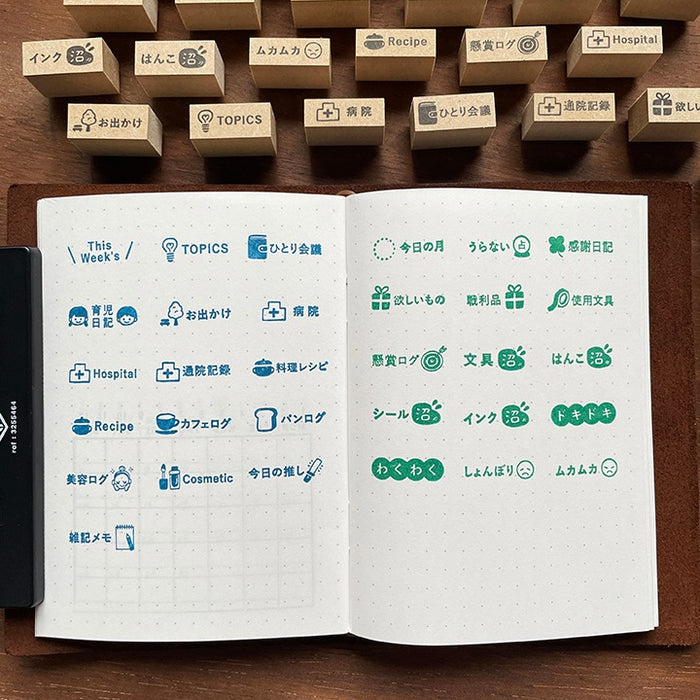 インク沼
はんこ沼
ムカムカ
Recipe
懸賞ログ
Hospital
お出かけ
TOPICS
病院
ひとり会議
通院記録
欲しい
This Week's
TOPICS
ひとり会議
育児日記
お出かけ
病院
Hospital
通院記録
料理レシピ
Recipe
カフェログ
パンログ
美容ログ
Cosmetic
今日の推し
雑記メモ
今日の月
うらない 占
感謝日記
欲しいもの
戦利品
使用文具
懸賞ログ
文具沼
はんこ沼
シール沼
インク沼
ドキドキ
わくわく
しょんぼり
ムカムカ
ref : 3255464